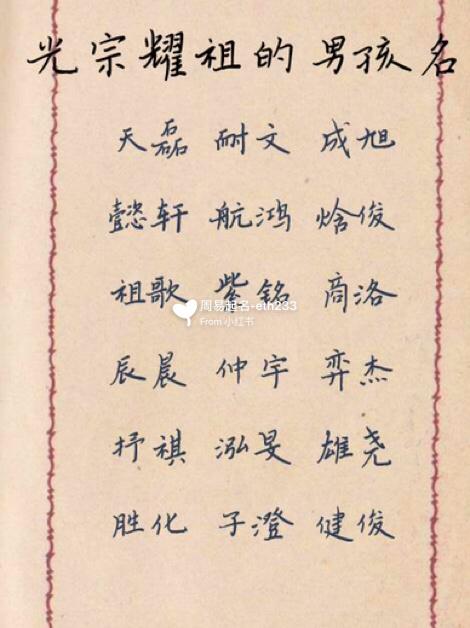 光宗耀祖的男孩名
天磊 耐文 成旭
懿轩 航鸿 焓俊
祖歌 紫铭 商洛
周易起名-eth233
From 小红书
辰晨 仲宇 弈杰
抒祺 泓旻 雄尧
胜化 子澄 健俊